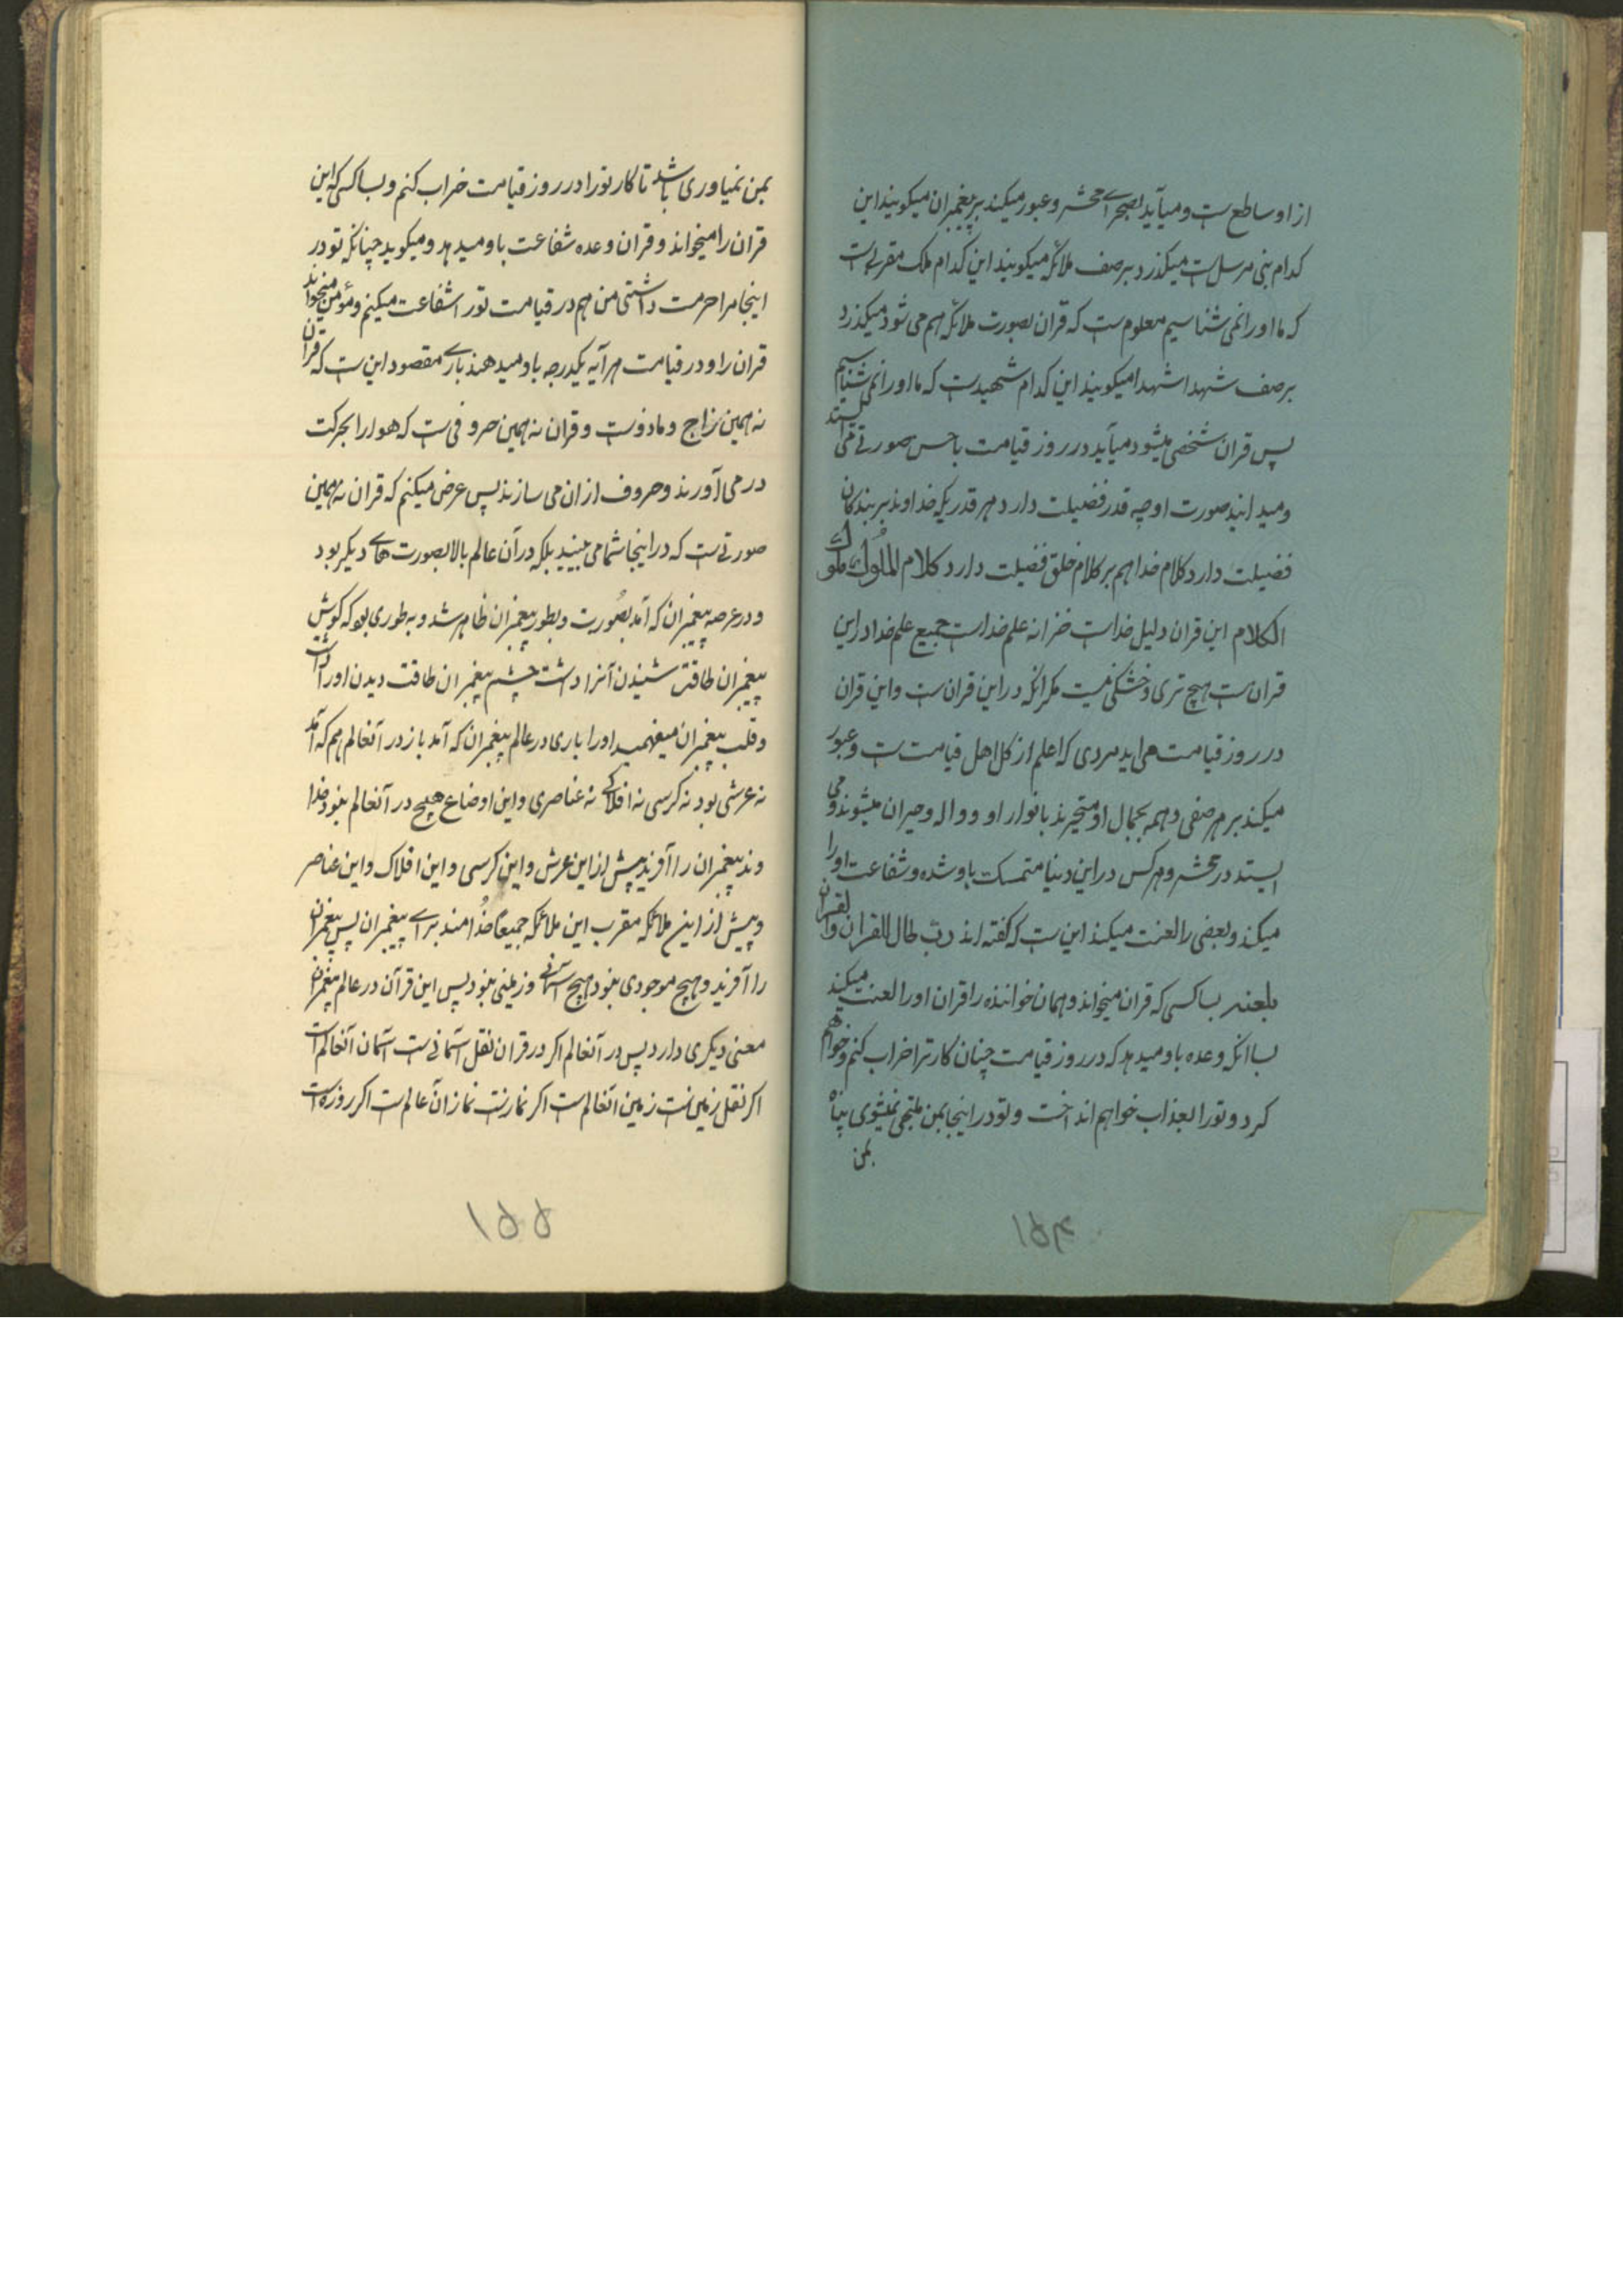 از او ساطع ست و میآید بصحرای محشر و عبور میکند بر پیغمبران میکویند این
کدام نبی مرسل ست میکذرد بر صف ملائکه میکویند این کدام ملک مقرب است
که ما او را نمی شناسیم معلوم ست که قران بصورت ملائکه هم می شود میکذرد
بر صف شهدا شهدا میکویند این کدام شهیدست که ما او را نمی شناسیم
پس قران شخصی میشود میآید در روز قیامت باحسن صورتی می ایستد
و میدانید صورت او چه قدر فضیلت دارد هر قدریکه خداوند بر بندکان
فضیلت دارد کلام خدا هم بر کلام خلق فضیلت دارد کلام الملُوك ملُوك
الکلام این قران دلیل خداست خزانه علم خداست جمیع علم خدا در این
قران ست هیچ تری و خشکی نیست مکر انکه در این قران ست و این قران
در روز قیامت می اید مردی که اعلم از کل اهل قیامت ست و عبور
میکند بر هر صفی و همه بجمال او متحیرند بانوار او و واله و حیران میشوند و می
ایستد در محشر و هر کس در این دنیا متمسک باو شده و شفاعت او را
میکند و بعضی را لعنت میکند این ست که کفته اند رب تال القران و القران
یلعنه بسا کسی که قران میخواند و همان خواننده را قران او را لعنت میکند
بسا انکه وعده باو میدهد که در روز قیامت چنان کار ترا خراب کنم و خواهم
کرد و تو را بعذاب خواهم انداخت و تو در اینجا بمن ملتجی نمیشوی پناه
بمن
۱۵۴
بمن نمیاوری باشد تا کار تو را در روز قیامت خراب کنم و بسا کسی که این
قران را میخواند و قران وعده شفاعت باو میدهد و میکوید چنانکه تو در
اینجا مرا حرمت داشتی من هم در قیامت تو را شفاعت میکنم و مؤمن میخواند
قران را و در قیامت هر آیه یکدرجه باو میدهند باری مقصود این ست که قران
نه همین زاج و مادوست و قران نه همین حروفی ست که هوا را بحرکت
در می آورند و حروف از ان می سازند پس عرض میکنم که قران نه همین
صورتی ست که در اینجا شما می بینید بلکه در آن عالم بالا بصورت های دیکر بود
و در عرصه پیغمبران که آمد بصُورت و بطور پیغمبران ظاهر شد و به طوری بود که کوش
پیغمبران طاقت شنیدن آنرا داشت چشم پیغمبران طاقت دیدن او را داشت
و قلب پیغمبران میفهمید او را باری در عالم پیغمبران که آمد باز در آنعالم هم که آمد
نه عرشی بود نه کرسی نه افلاکی نه عناصری و این اوضاع هیچ در آنعالم نبود خدا
وند پیغمبران را آفرید پیش از این عرش و این کرسی و این افلاک و این عناصر
و پیش از این ملائکه مقرب این ملائکه جمیعًا خدُامند برای پیغمبران پس پیغمبران
را آفرید و هیچ موجودی نبود هیچ آسمانی و زمینی نبود پس این قرآن در عالم پیغمبران
معنی دیکری دارد پس در آنعالم اکر در قران نقل آسمانی ست آسمان آنعالم است
اکر نقل زمین ست زمین آنعالم ست اکر نماز ست نماز آن عالم ست اکر روزه است
۱۵۵